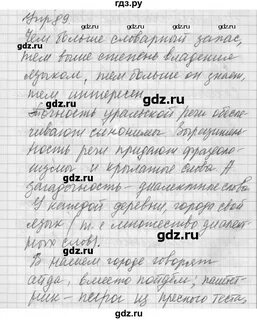 гдз.ру
Упр.89
Чем больше словарный запас,
тем выше степень владения
языком, тем больше он знает,
тем интересн
Точность уральской речи обеспе-
чивают синонимы. Выразитель-
ность речи придают фразеоло-
гизмы и крылатые слова. А
загадочность - диалектные слова.
У каждой деревни, города свой
язык (т. е множество диалект
ных слов).
В нашем городе говорят
айда, вместо пойдём;
- пегоры из пресного теста,
гдз.рф